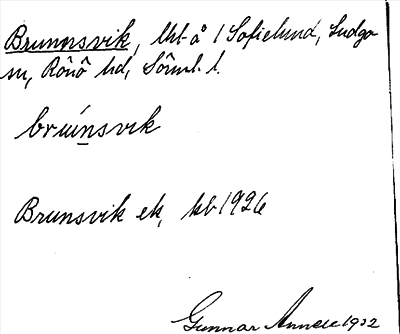 Brunnsvik, lht å 1 Sofielund, Ludgo
sn, Rönö hd, Sörml. l.
brúnsvik
Brunsvik ek, kb 1926
Gunnar Annell 1932